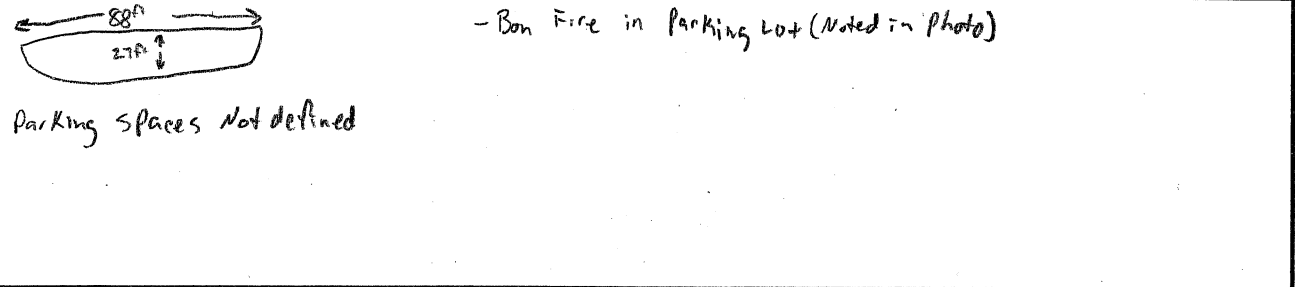 88ft
- Bon Fire in Parking Lot (Noted in Photo)
27ft
Parking spaces Not defined